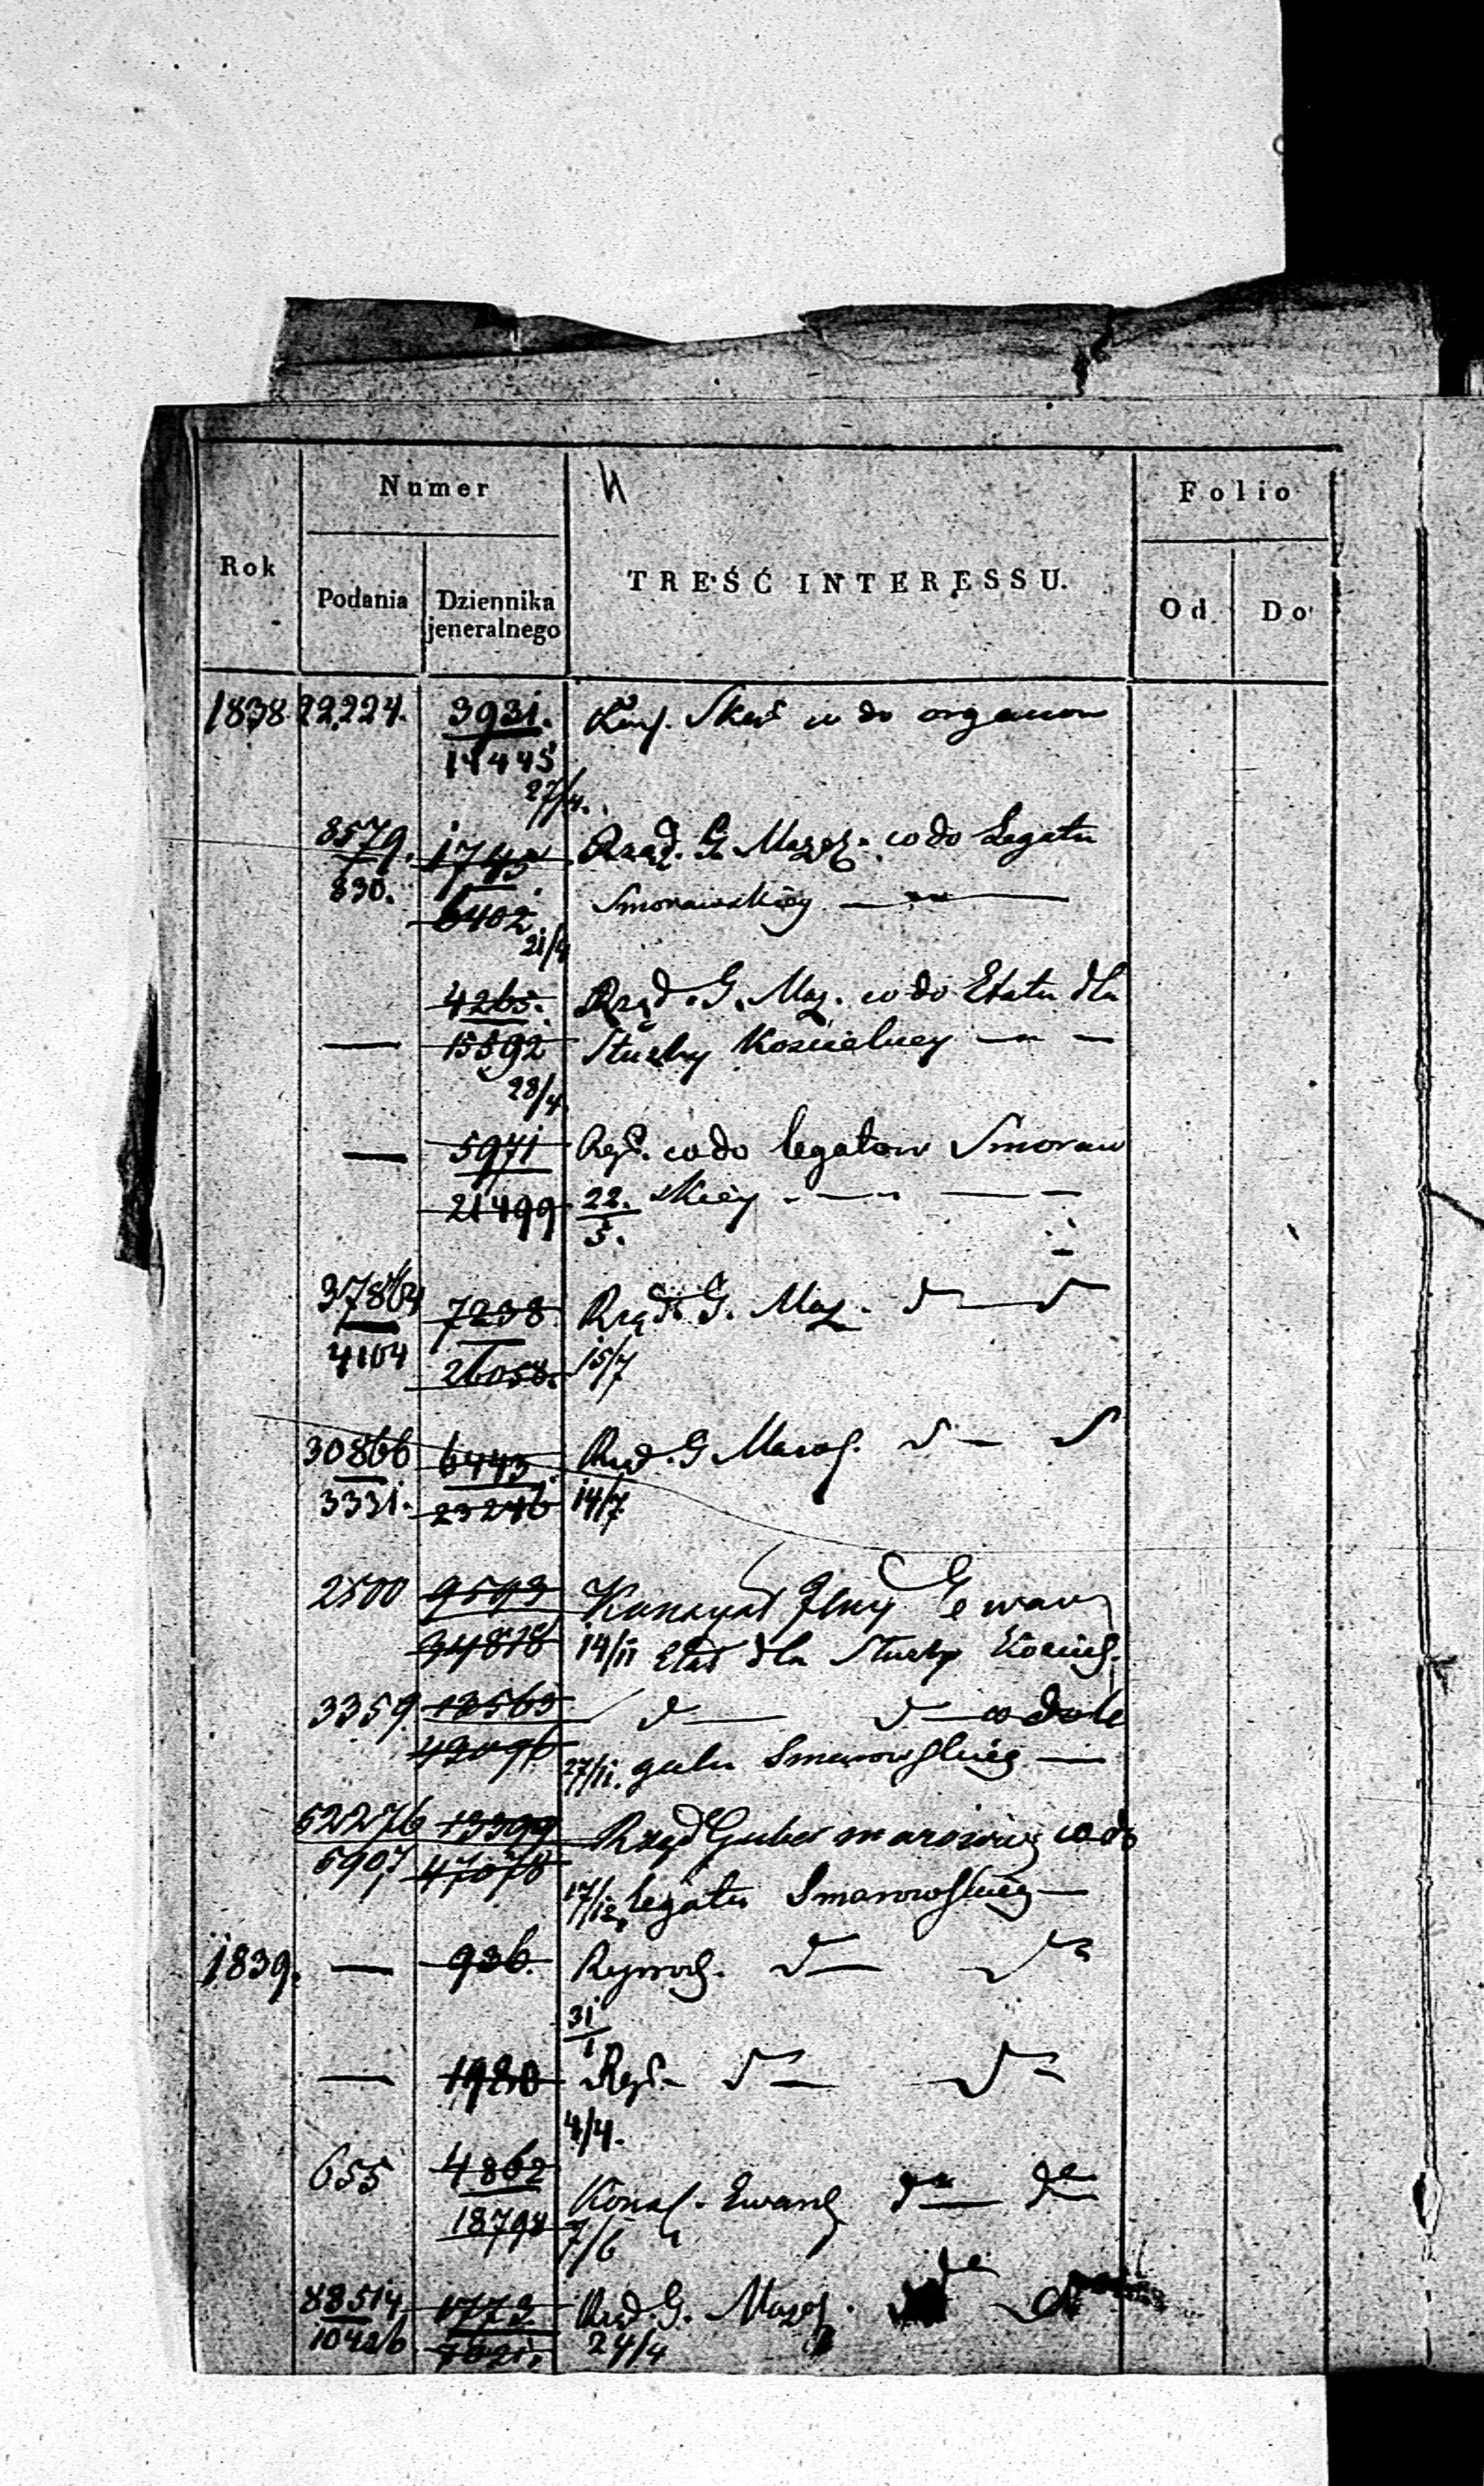 Numer
Folio
Rok
Podania
Dziennika
jeneralnego
TREŚĆ INTERESSU.
Od
Do
1838. 22224. 3931. Skar co do organow
14445
27/4.
8579. 1745 Rząd. G. Mazo. co do Legatu
830. 6402 Smorawskiey
21/4
4265. Rząd. G. Maz. co do Etatu dla
— 15592 Służby Kościelney — —
28/4
— 5971 Rep. co do legatow Smoraw
21499 22/5. skiey
37864 7238 Rząd. G. Maz. d— d
4104 26058. 15/7
30866 6443 Rząd. G Mazow. d— d
3331. 23246 14/7
2500 9593 Jlny Ewan
34878 14/11 Etat dla Służby Kościel.
3359 d— d— co do le
27/11. gatu Smorawskiey —
52276 13399 Rząd Guber mazowiec co do
5907 47078 17/12 legatu Smorawskiey —
1839. — 936. d— d
31/1
— 1980 Rep. d— d
4/4.
655 4862 Kons. Ewang do do
18798 7/6
88514 1773 Rząd. G. Mazo. do
10426 7021. 24/4